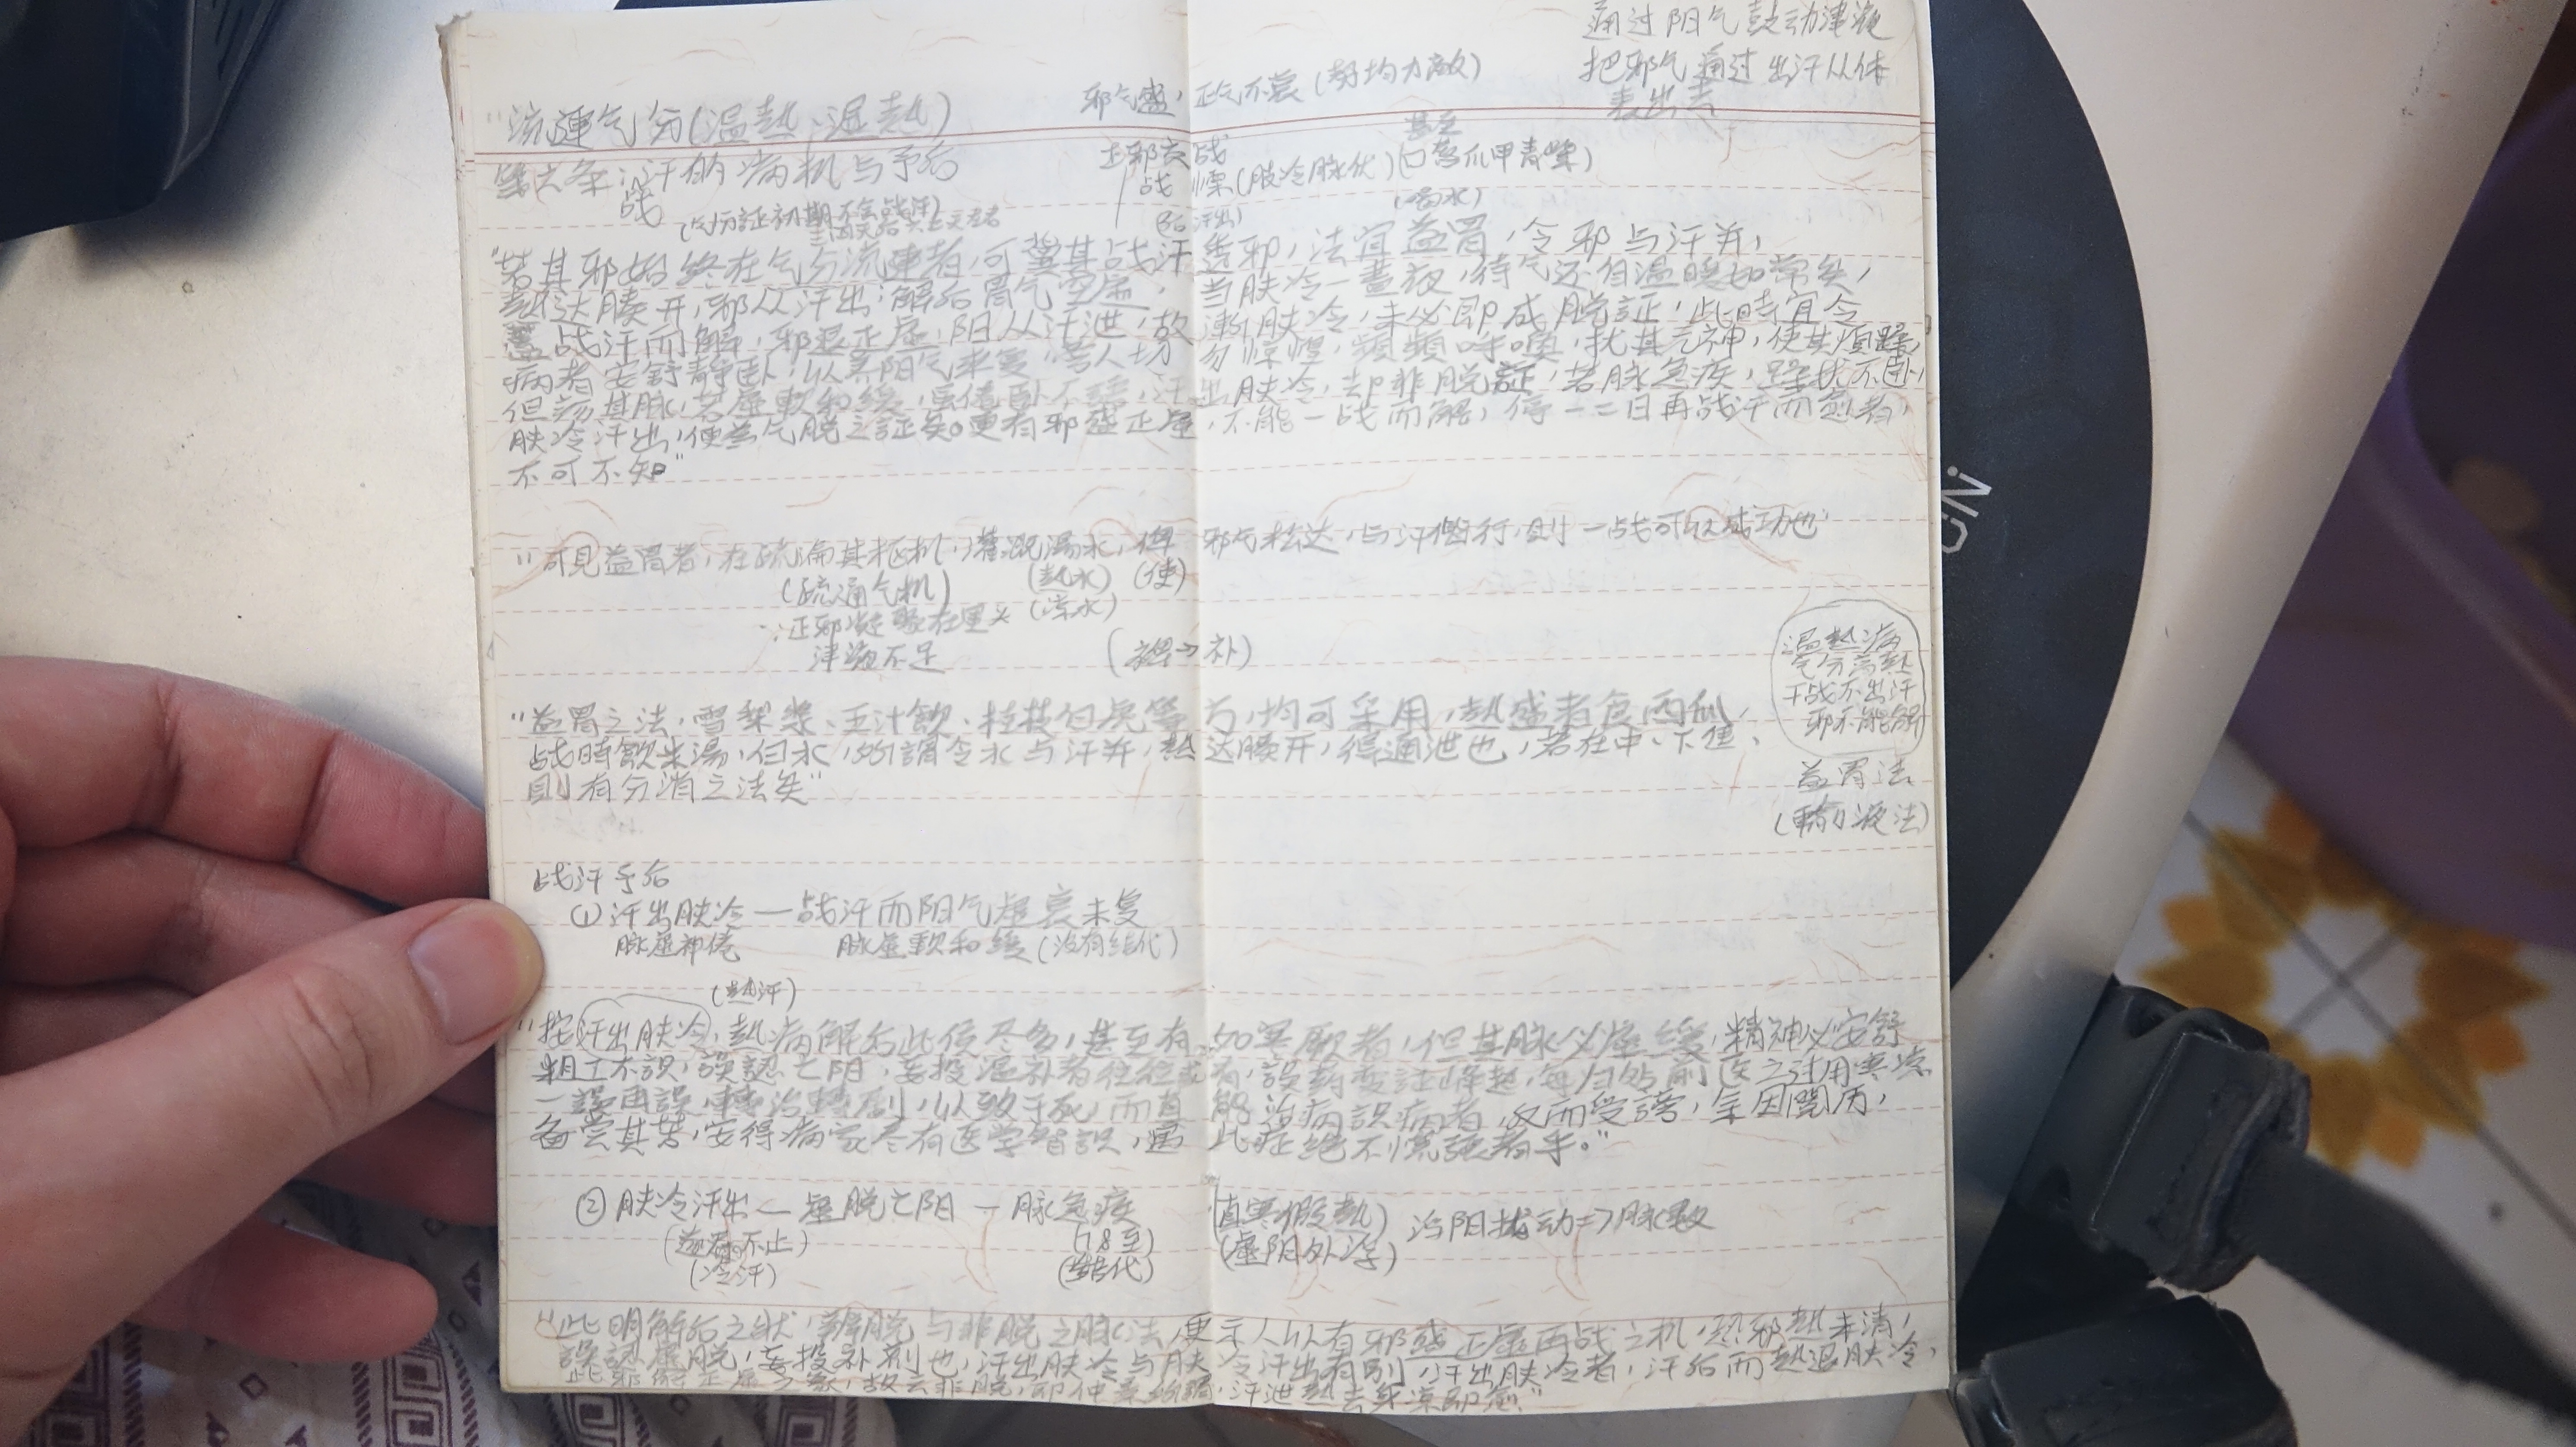 通过阳气鼓动津液
把邪气通过出汗从体
表出去
邪气盛,正气不衰(势均力敵)
"流連气分(温熱、湿熱)
甚至
第六条:战汗的病机与予后
正邪交战
战慄(肤冷脉伏)(口唇爪甲青紫)
(气分証初期不会战汗)
后(汗出)
(喝水)
"若其邪始終在气分流連者,可冀其战汗透邪,法宜益胃,令邪与汗并,
熱达腠开,邪从汗出;解后胃气空虚,当肤冷一晝夜,待气还自温暖如常矣,
蓋战汗而解,邪退正虚,阳从汗泄,故漸肤冷,未必即成脱証,此時宜令
病者安舒静卧,以养阳气来复,旁人切勿惊惶,頻頻呼喚,扰其元神,使其煩躁,
但诊其脉,若虚軟和緩,虽倦卧不語,汗出肤冷,却非脱証,若脉急疾,躁扰不卧,
肤冷汗出,便為气脱之証矣。更有邪盛正虚,不能一战而解,停一二日再战汗而愈者,
不可不知"
"可見益胃者,在疏瀹其枢机,灌溉湯水,俾邪气松达,与汗偕行,則一战可以成功也"
(疏通气机)
(熱水)
(使)
(凉水)
∵正邪凝聚在里头
津液不足
(益⇒补)
温熱病
气分高熱
干战不出汗
邪不能解
"益胃之法,雪梨漿、五汁飲、桂枝白虎等方,均可采用,熱盛者食西瓜,
战時飲米湯,白水,所謂令水与汗并,熱达腠开,得通泄也,若在中、下焦,
則有分消之法矣"
益胃法
(輸液法)
战汗予后
① 汗出肤冷 — 战汗而阳气虚衰未复
脉虚神倦
脉虚軟和緩(没有结代)
(熱汗)
"按汗出肤冷,熱病解后此候尽多,甚至有如寒厥者,但其脉必虚緩,精神必安舒
粗工不識,誤認亡阳,妄投温补者往往或有,誤药变証峰起,每归咎前医之过用寒凉
一誤再誤,轉治轉剧,以致于死,而真能治病識病者,反而受謗,余因閱历,
备嘗其苦,安得病家尽有医学智識,遇此症绝不慌張着手。"
② 肤冷汗出 — 虚脱亡阳 — 脉急疾
(真寒假熱)
浮阳扰动 => 脉數
(逆春不止)
(7.8至)
(虚阳外浮)
(冷汗)
(结代)
"此明解后之状,辨脱与非脱之脉法,更示人以有邪盛正虚再战之机,恐邪熱未清,
誤認虚脱,妄投补剂也,汗出肤冷与肤冷汗出有别,汗出肤冷者,汗后而熱退肤冷,
此邪解正虚之象,故云非脱,即仲景所謂,汗泄熱去身凉即愈"